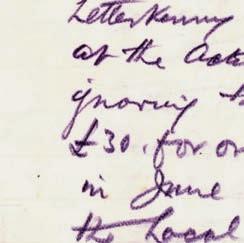 Letterkenny
at the
ignoring
£30. for
in June
the Local